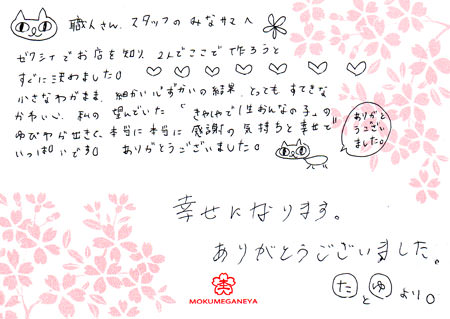 職人さん、スタッフのみなサマへ
ゼクシィでお店を知り、2人でここで作ろうと
すぐに決めました。
小さなわがまま、細かい心づかいの結果、とってもすてきな
かわいい、私の望んでいた「きゃしゃで1生おんなの子」の
ゆびわが出きて、本当に本当に感謝の気持ちと幸せで
いっぱいです。ありがとうございました。
ありがと
うござい
ました。
幸せになります。
ありがとうございました。
た と ゆ より。
MOKUMEGANEYA